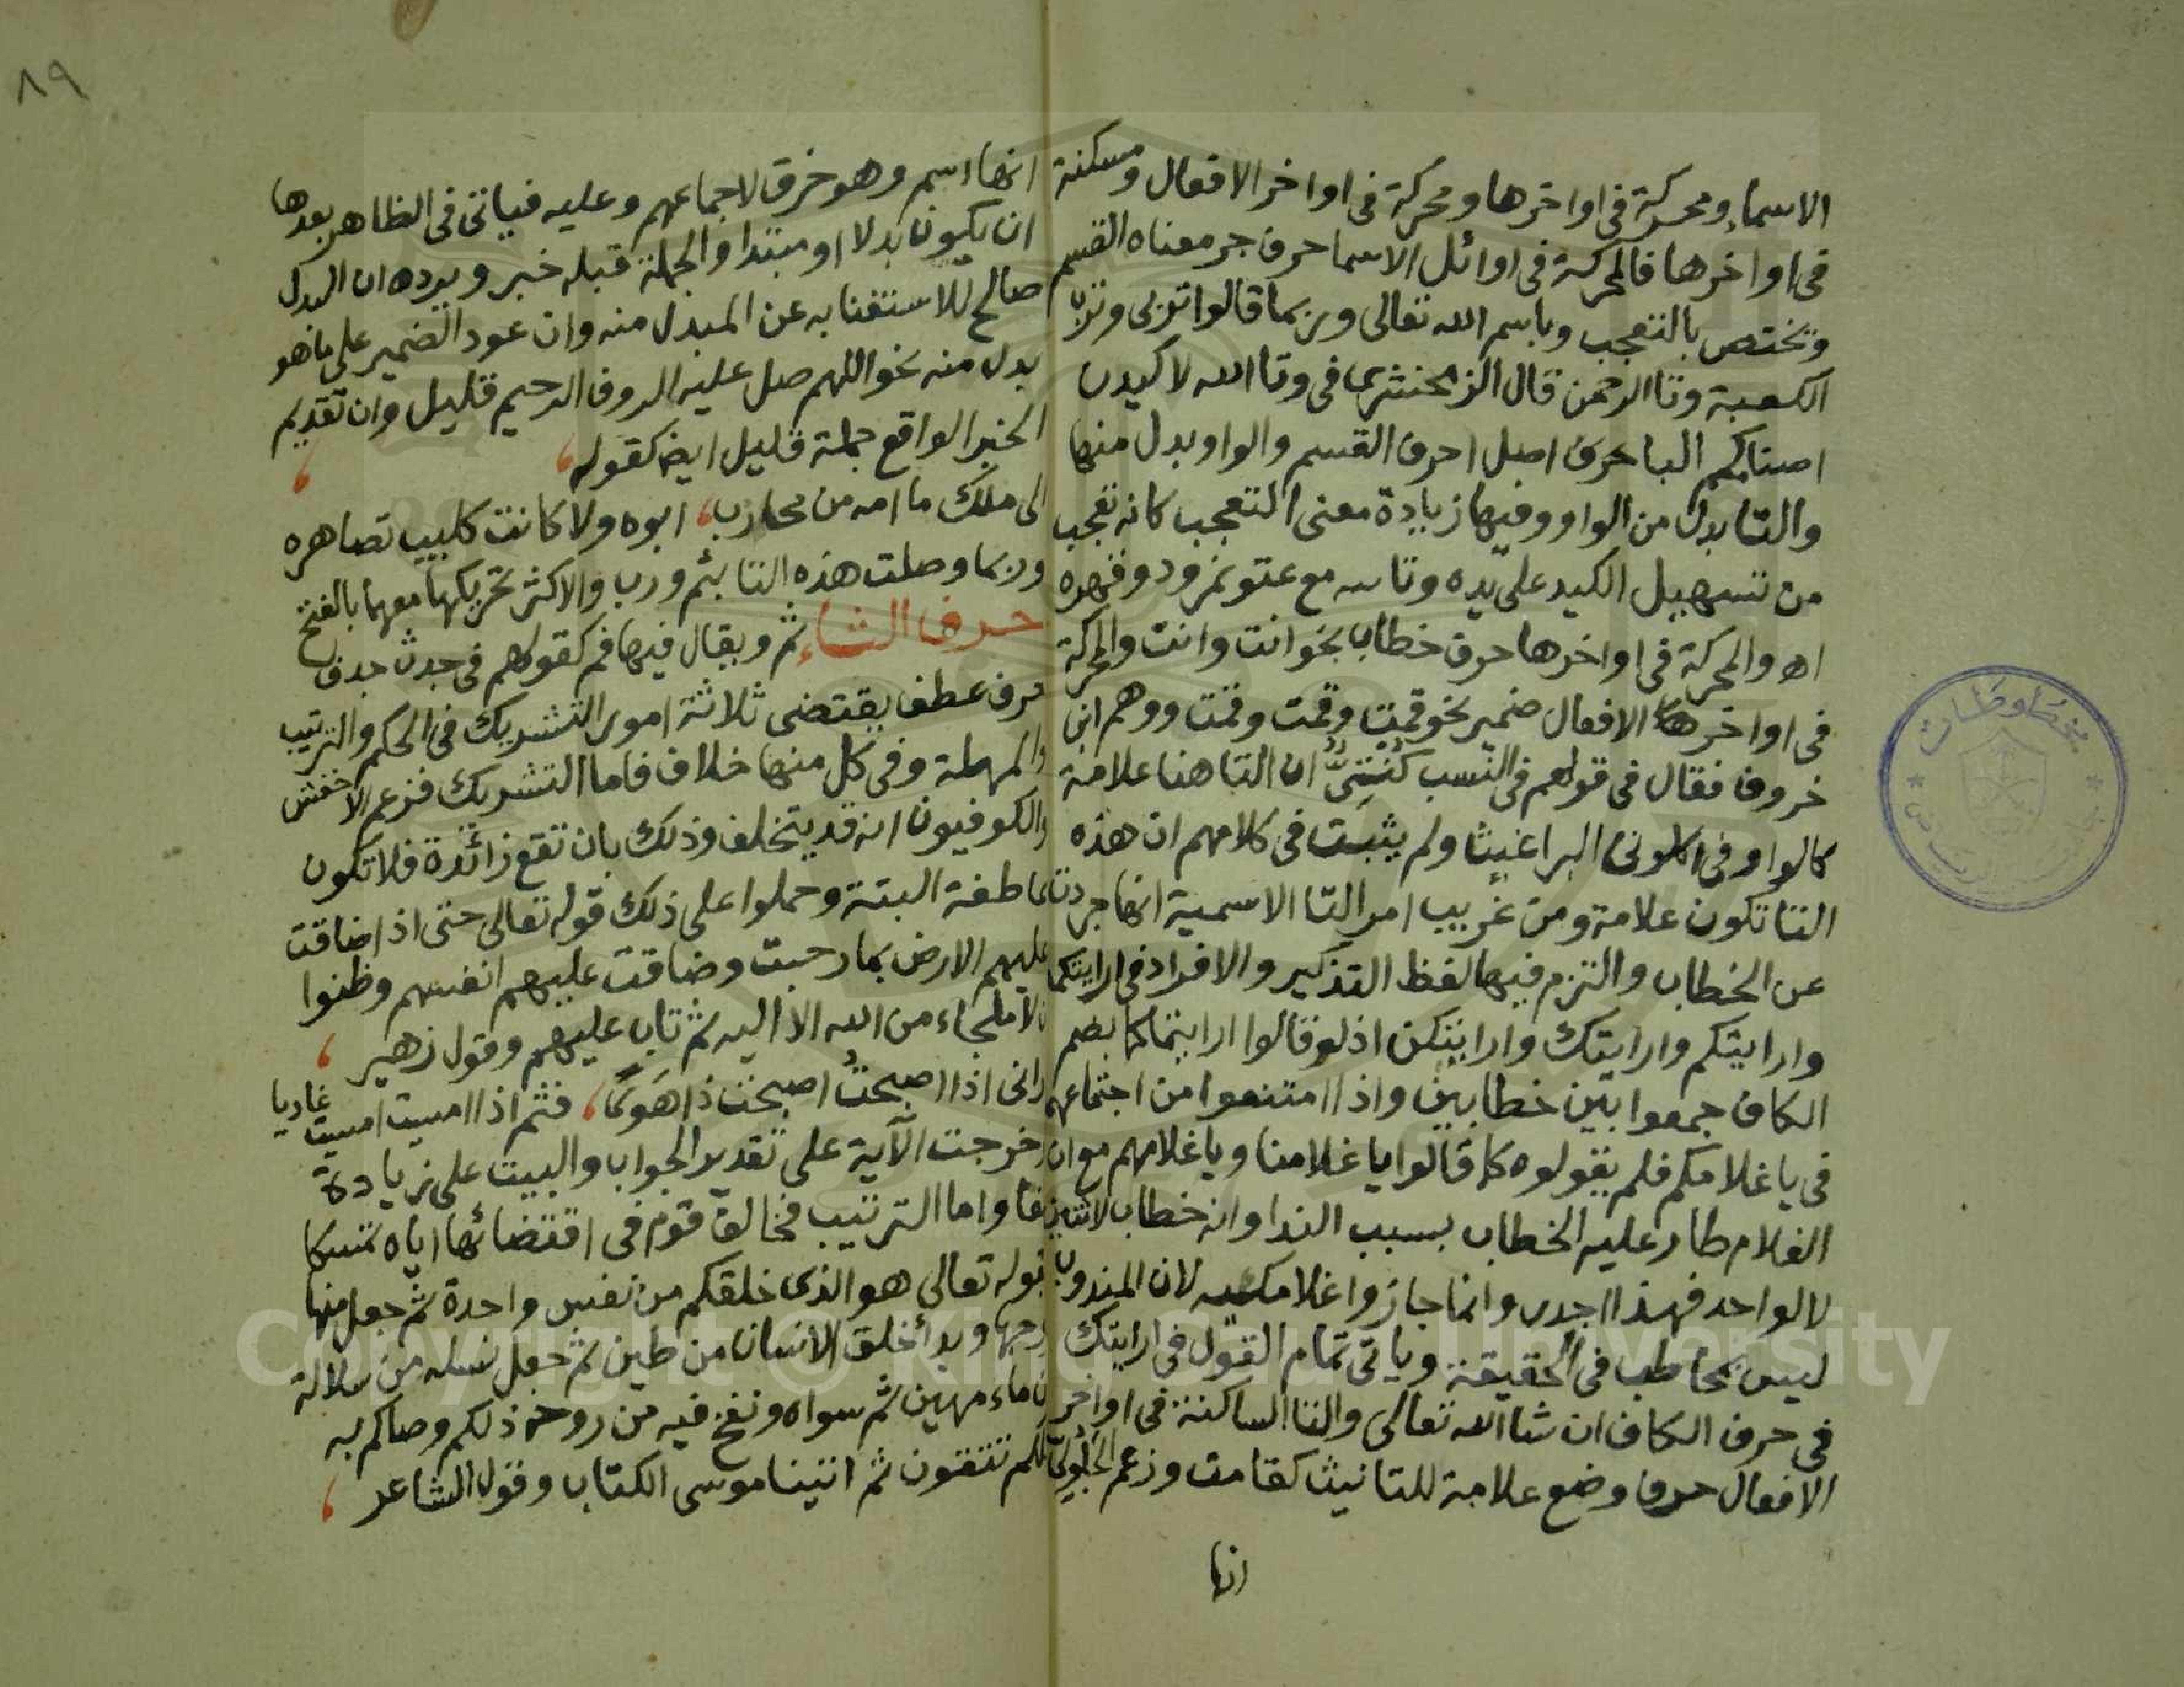 الاسماء ومحركة في اواخرها ومحركة في اواخر الافعال ومسكنة
في اواخرها فالمحركة في اوائل الاسما حرف جر معناه القسم
وتختص بالتعجب وباسم الله تعالى وربما قالوا تربي وترب
الكعبة وتا الرحمن قال الزمخشري في وتا الله لاكيدن
اصنامكم البا حرف اصل احرف القسم والواو بدل منها
والتا بدل من الواو وفيها زيادة معنى التعجب كانه تعجب
من تسهيل الكيد على يده وتاته مع عتو نمرود وقهره
اه والمحركة في اواخرها حرف خطاب نحو انت وانت والمحركة
في اواخر الافعال ضمير نحو قمت وقمت وقمت ووهم ابن
خروف فقال في قولهم في النسب كُنْتِيٌّ ان التا هنا علامة
كالواو في اكلوني البراغيث ولم يثبت في كلامهم ان هذه
التا تكون علامة ومن غريب امر التا الاسمية انها جردت
عن الخطاب والتزم فيها لفظ التذكير والافراد في ارايتكما
وارايتكم وارايتك وارايتكن اذ لو قالوا ارايتماكما بضم
الكاف جمعوا بين خطابين واذا امتنعوا من اجتماعهما
في يا غلامكم فلم يقولوه كما قالوا يا غلامنا ويا غلامهم مع ان
الغلام طار عليه الخطاب بسبب الندا وانه خطاب لاثنين
لا لواحد فهذا اجدر وانما جاز واغلامكيه لان المندوب
ليس بمخاطب في الحقيقة وياتي تمام القول في ارايتك
في حرف الكاف ان شا الله تعالى والتا الساكنة في اواخر
الافعال حرف وضع علامة للتانيث كقامت وزعم الجلولي
انها
٨٩
انها اسم وهو خرق لاجماعهم وعليه فياتي في الظاهر بعدها
ان يكون بدلا او مبتدا والجملة قبله خبر ويرده ان البدل
صالح للاستغنا به عن المبدل منه وان عود الضمير على ما هو
بدل منه نحو اللهم صل عليه الروف الرحيم قليل وان تقديم
الخبر الواقع جملة قليل ايضا كقوله
الى ملك ما امه من محارب، ابوه ولا كانت كليب تصاهره
وربما وصلت هذه التا بثم ورب والاكثر تحريكها معهما بالفتح
حرف الثاء ثم ويقال فيها فم كقولهم في جدث جدف
حرف عطف يقتضي ثلاثة امور التشريك في الحكم والترتيب
والمهملة وفي كل منها خلاف فاما التشريك فزعم الاخفش
والكوفيون انه قد يتخلف وذلك بان تقع زائدة فلا تكون
عاطفة البتة وحملوا على ذلك قوله تعالى حتى اذا ضاقت
عليهم الارض بما رحبت وضاقت عليهم انفسهم وظنوا
ان لا ملجاء من الله الا اليه ثم تاب عليهم وقول زهير
اراني اذا اصبحتُ اصبحت ذا هَوًى، فثم اذا امسيت امسيت غاديا
وخرجت الآية على تقدير الجواب والبيت على زيادة
الفا واما الترتيب فخالف قوم في اقتضائها اياه تمسكا
بقوله تعالى هو الذي خلقكم من نفس واحدة ثم جعل منها
زوجها وبدأ خلق الانسان من طين ثم جعل نسله من سلالة
من ماء مهين ثم سواه ونفخ فيه من روحه ذلكم وصاكم به
لعلكم تتقون ثم اتينا موسى الكتاب وقول الشاعر
مخطوطات
Copyright © King Saud University